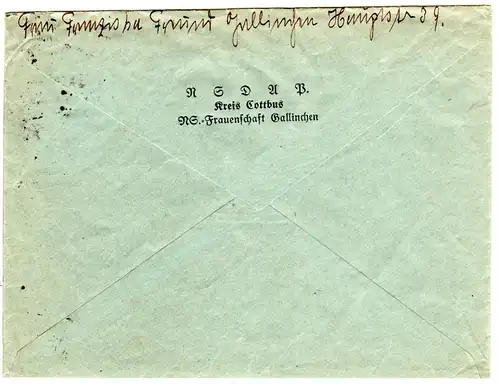 Frau Franziska Freund Gallinchen Hauptstr 39.
N S D A P.
Kreis Cottbus
NS.-Frauenschaft Gallinchen